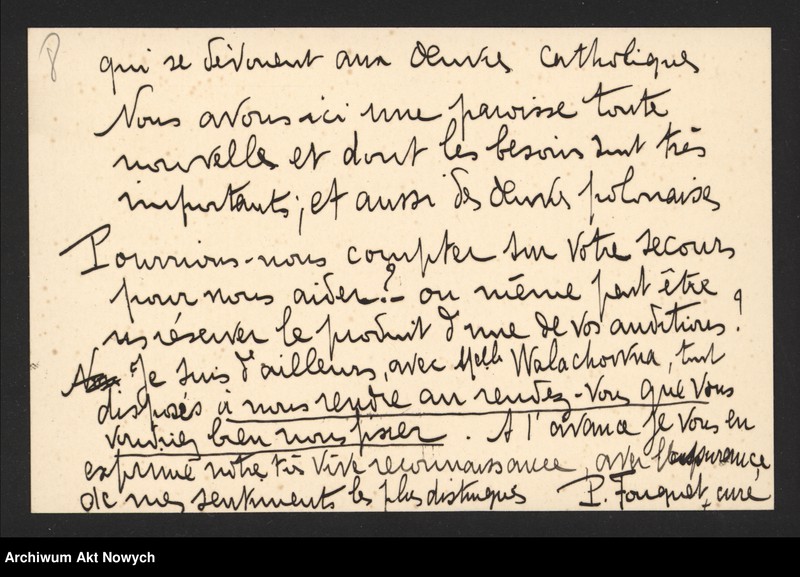 8
qui se dévouent aux Œuvres catholiques
Nous avons ici une paroisse toute
nouvelle et dont les besoins sont très
importants, et aussi des Œuvres polonaises
Pourrions-nous compter sur votre secours
pour nous aider? - ou même peut être
ns réserver le produit d'une de vos auditions?
Je suis d'ailleurs, avec Melle Walachowna, tout
disposés à nous rendre au rendez-vous que vous
voudriez bien nous fixer. A l'avance je vous en
exprime notre très vive reconnaissance, avec l'assurance
de mes sentiments les plus distingués P. Fouquet, curé
Archiwum Akt Nowych